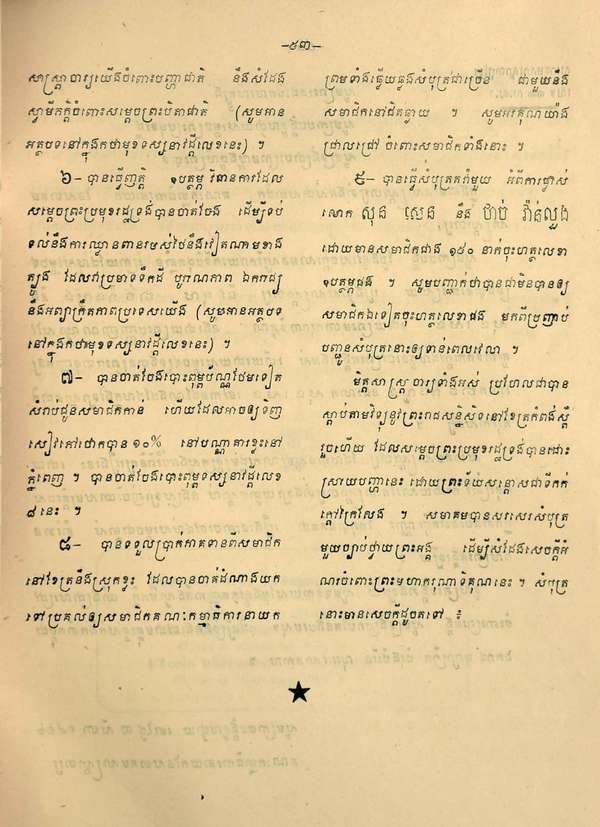 –៤៣–
សាស្ត្រាចារ្យយើងចំពោះបញ្ហាជាតិ នឹងសំដែង
ស្វាមីភក្ដិចំពោះសម្ដេចព្រះបិតាជាតិ (សូមអាន
អត្ថបទនៅក្នុងកថាមុខទស្សនាវដ្ដីលេខនេះ) ។
៦– បានធ្វើញត្តិ ឧបត្ថម្ភ វិធានការដែល
សម្ដេចព្រះប្រមុខរដ្ឋទ្រង់បានចាត់ចែង ដើម្បីទប់
ទល់នឹងការឈ្លានពានរបស់ថៃនឹងវៀតណាមខាង
ត្បូង ដែលវាប្រមាទទឹកដី បូរណភាព ឯករាជ្យ
នឹងអព្យាក្រឹតភាពប្រទេសយើង (សូមអានអត្ថបទ
នៅក្នុងកថាមុខទស្សនាវដ្ដីលេខនេះ) ។
៧– បានចាត់ចែងបោះពុម្ពប័ណ្ណថែមទៀត
សំរាប់ជូនសមាជិកកាន់ ហើយដែលអាចឲ្យទិញ
សៀវភៅថោកបាន ១០% នៅបណ្ណាគារខ្លះនៅ
ភ្នំពេញ ។ បានចាត់ចែងបោះពុម្ពទស្សនាវដ្ដីលេខ
៨ នេះ ។
៨– បានទទួលប្រាក់ភាគទានពីសមាជិក
នៅខែត្រនឹងស្រុកខ្លះ ដែលបានចាត់ដំណាងយក
ទៅប្រគល់ឲ្យសមាជិកគណៈកម្មាធិការនាយក
ព្រមទាំងឆ្លើយឆ្លងសំបុត្រជាច្រើន ជាមួយនឹង
សមាជិកនៅជិតឆ្ងាយ ។ សូមអរគុណយ៉ាង
ជ្រាលជ្រៅ ចំពោះសមាជិកទាំងនោះ ។
៩– បានធ្វើសំបុត្រតវ៉ាមួយ អំពីការផ្លាស់
លោក សុន សេន នឹង ថាច់ វ៉ាន់ល្វួង
ដោយមានសមាជិកជាង ១៥០ នាក់ចុះហត្ថលេខា
ឧបត្ថម្ភផង ។ សូមបញ្ជាក់ថាបានជាមិនបានឲ្យ
សមាជិកឯទៀតចុះហត្ថលេខាផង មកពីប្រញាប់
បញ្ជូនសំបុត្រនោះឲ្យទាន់ពេលវេលា ។
មិត្តសាស្ត្រាចារ្យទាំងអស់ ប្រហែលជាបាន
ស្ដាប់តាមវិទ្យុនូវព្រះរាជសន្និសិទនៅខែត្រកំពង់ស្ពឺ
រួចហើយ ដែលសម្ដេចព្រះប្រមុខរដ្ឋទ្រង់បានដោះ
ស្រាយបញ្ហានេះ ដោយព្រះទ័យសន្ដោសជាទីកក់
ក្ដៅក្រៃលែង ។ សមាគមបានសរសេរសំបុត្រ
មួយច្បាប់ថ្វាយព្រះអង្គ ដើម្បីសំដែងសេចក្ដីអំ
ណរចំពោះព្រះមហាករុណាទិគុណនេះ ។ សំបុត្រ
នោះមានសេចក្ដីដូចតទៅ ៖